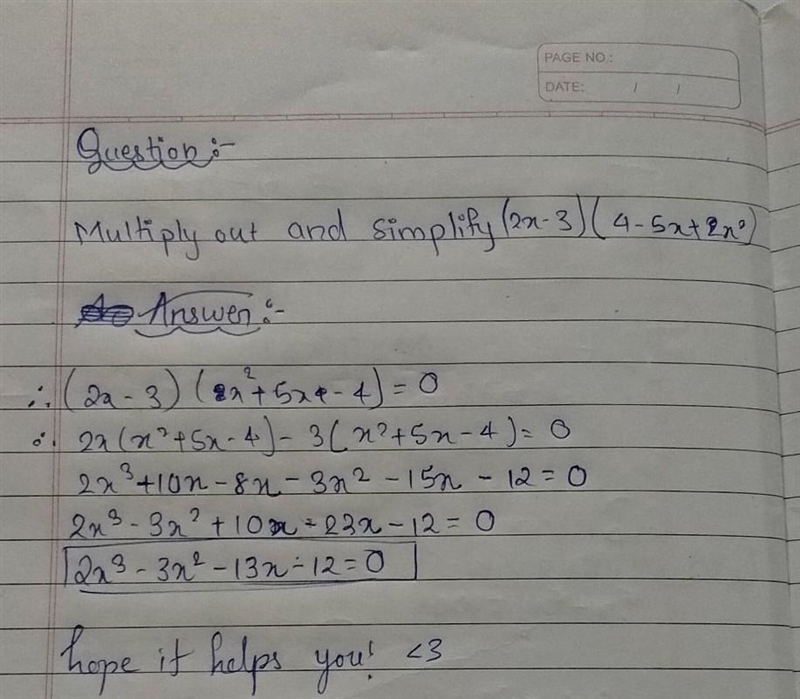 PAGE NO.:
DATE: / /
Question:-
Multiply out and simplify (2x-3)(4-5x+2x²)
Answer:-
∴ (2x-3)(2x²+5x-4)=0
∴ 2x(x²+5x-4)-3(x²+5x-4)=0
2x³+10x-8x-3x²-15x-12=0
2x³-3x²+10x-23x-12=0
2x³-3x²-13x-12=0
hope it helps you! <3